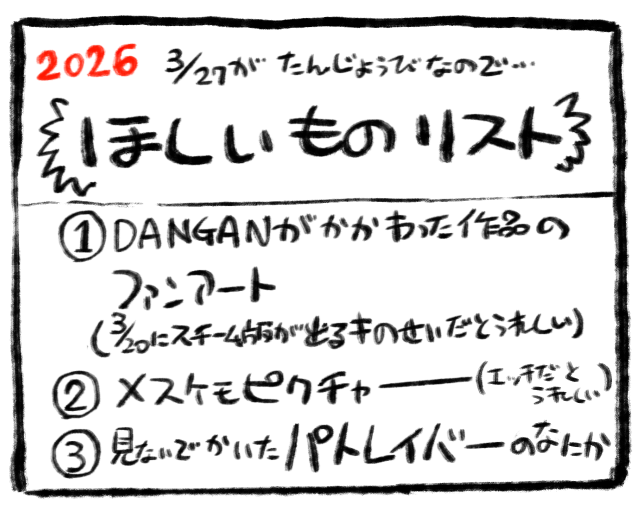 2026 3/27が たんじょうびなので…
ほしいものリスト
① DANGANがかかわった作品の
ファンアート
(3/20にスチーム版が出るキのせいだとうれしい)
② メスケモピクチャー――(エッチだと
うれしい)
③ 見ないでかいたパトレイバーのなにか